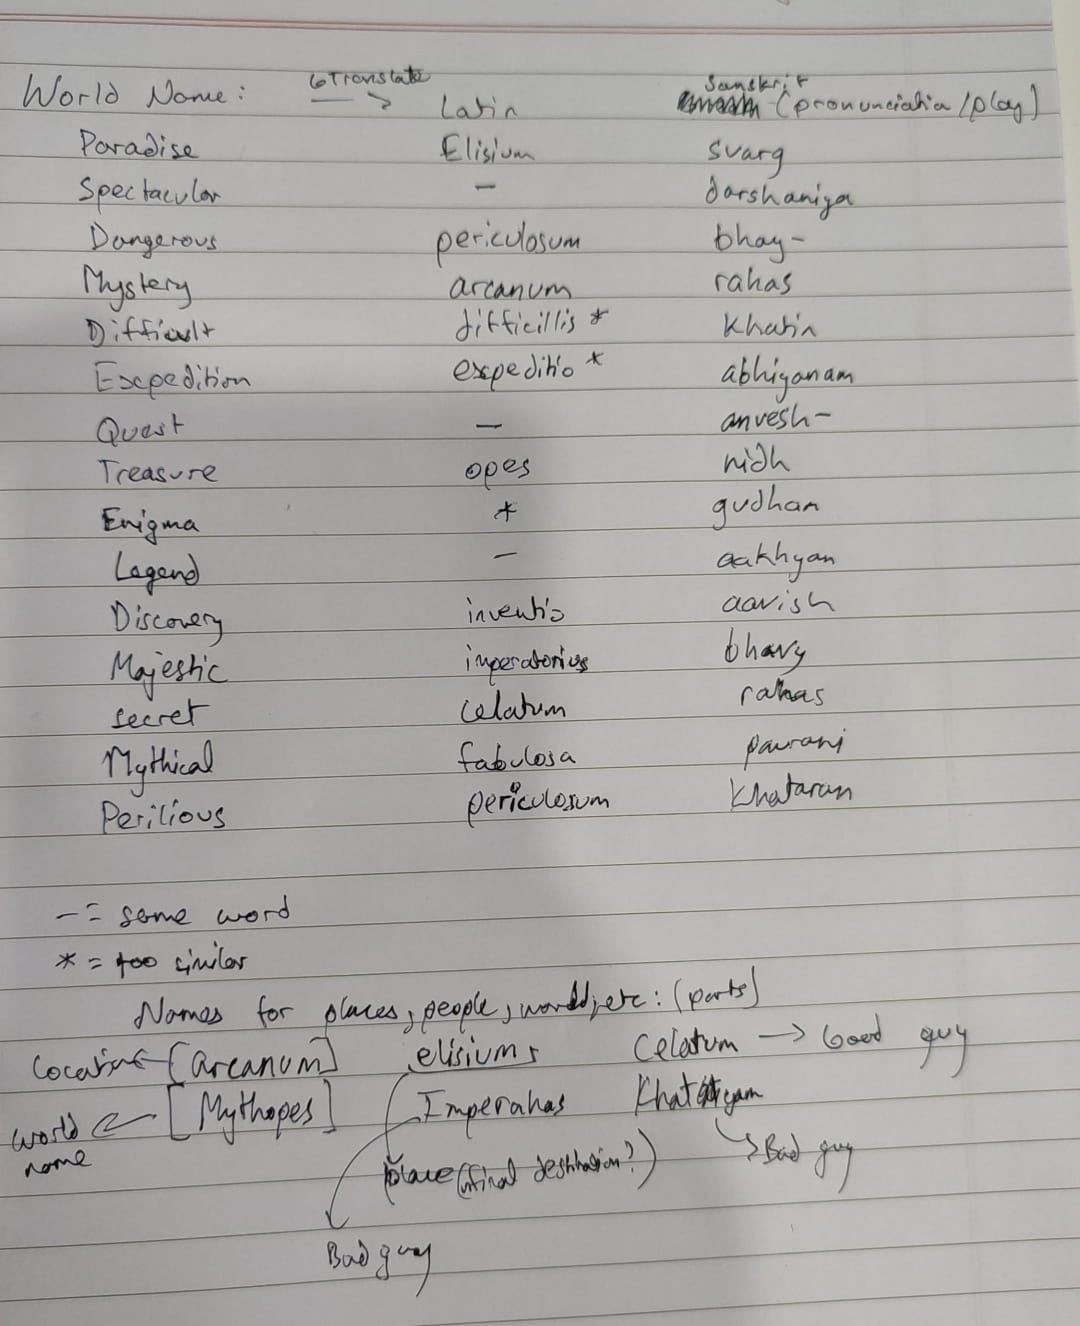 World Name: → Translate Latin Sanskrit (pronunciatia/play)
Paradise Elisium svarg
Spectacular - darshaniya
Dangerous periculosum bhay-
Mystery arcanum rahas
Difficult difficillis * Khatin
Expedition expeditio * abhiyanam
Quest - anvesh-
Treasure opes nidh
Enigma * gudham
Legend - aakhyan
Discovery inventio aavish
Majestic imperatorius bhavy
secret celatum rahas
Mythical fabulosa paurani
Perilious periculosum Khataran
- = same word
* = too similar
Names for places, people, world, etc: (parts)
Location ← [arcanum] elisium, Celatum → Good guy
world name ← [Mythopes] Imperahas
place (final destination?) → Bad guy
Bad guy